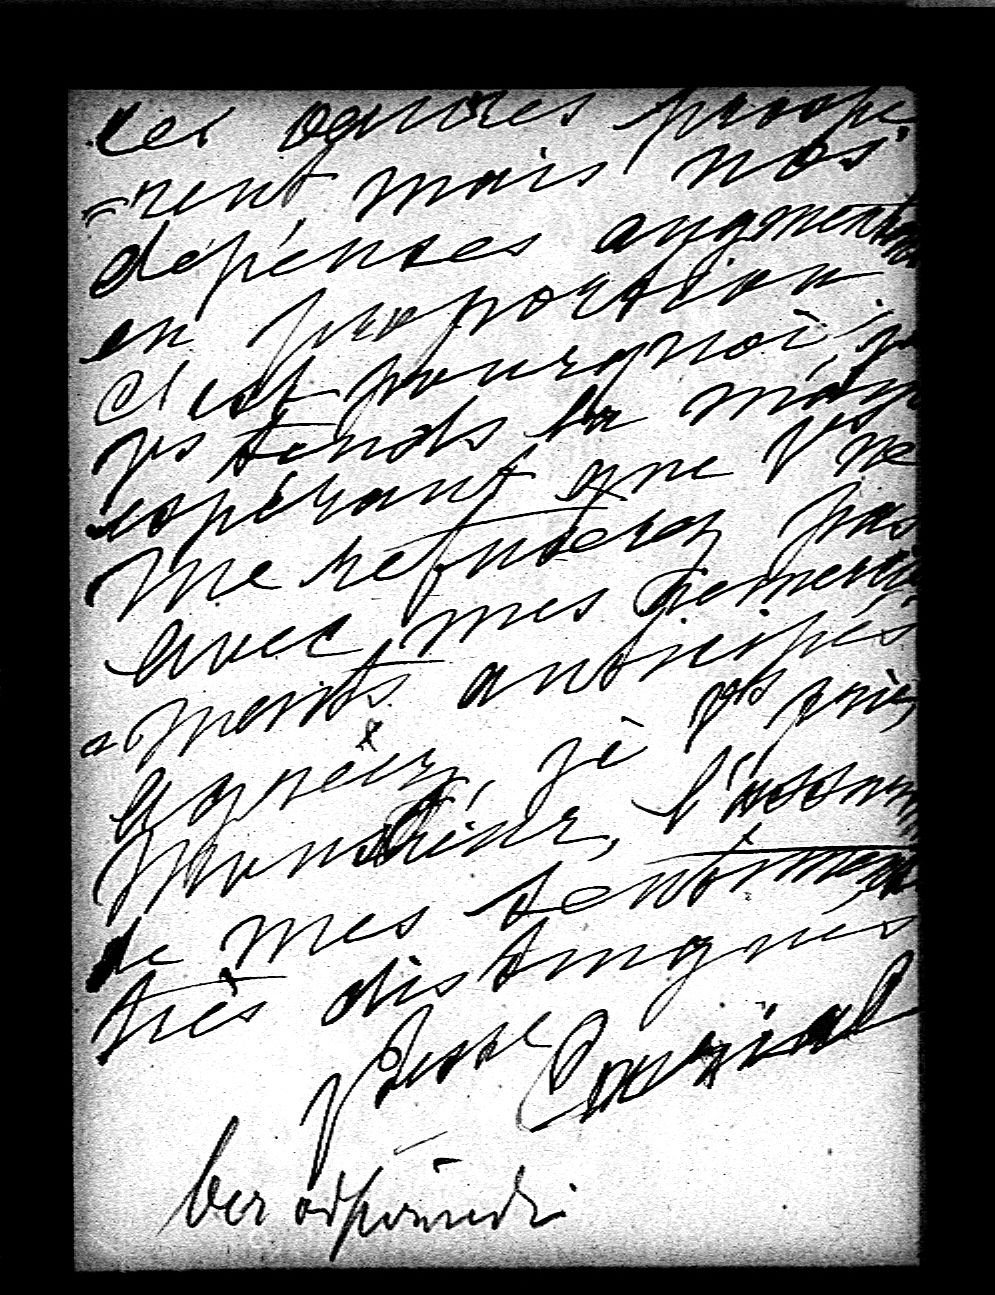 les œuvres prospè
=rent mais nos
dépenses augmentent
en proportion
C'est pourquoi je
vs tends la main
espérant que vs ne
me refuserez pas
avec mes remercie
=ments anticipés
agréez, je vs prie,
l'assurance
de mes sentiments
très distingués
bez odpowiedzi